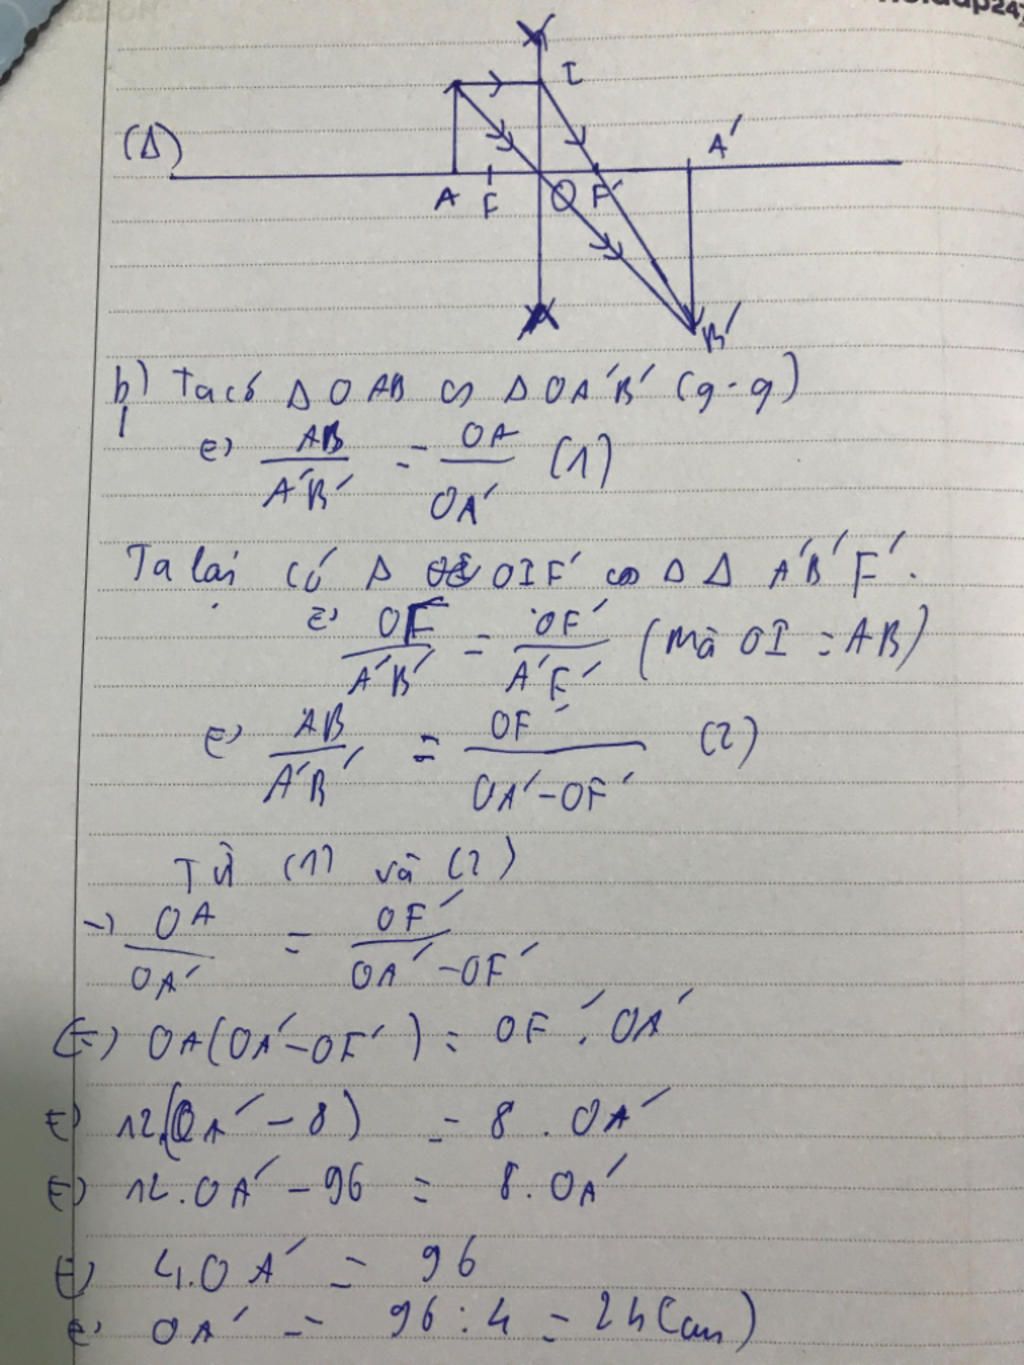 I
(Δ)
A'
A F O F'
B'
b) Ta có Δ OAB ∽ Δ OA'B' (g-g)
⇔ AB/A'B' = OA/OA' (1)
Ta lại có Δ OIF' ∽ Δ Δ A'B'F'.
⇔ OF/A'B' = OF'/A'F' (Mà OI = AB)
⇔ AB/A'B' = OF'/OA'-OF' (2)
Từ (1) và (2)
→ OA/OA' = OF'/OA'-OF'
⇔ OA(OA'-OF') = OF'.OA'
⇔ 12.(OA' - 8) = 8 . OA'
⇔ 12.OA' - 96 = 8.OA'
⇔ 4.OA' = 96
⇔ OA' = 96 : 4 = 24 (cm)